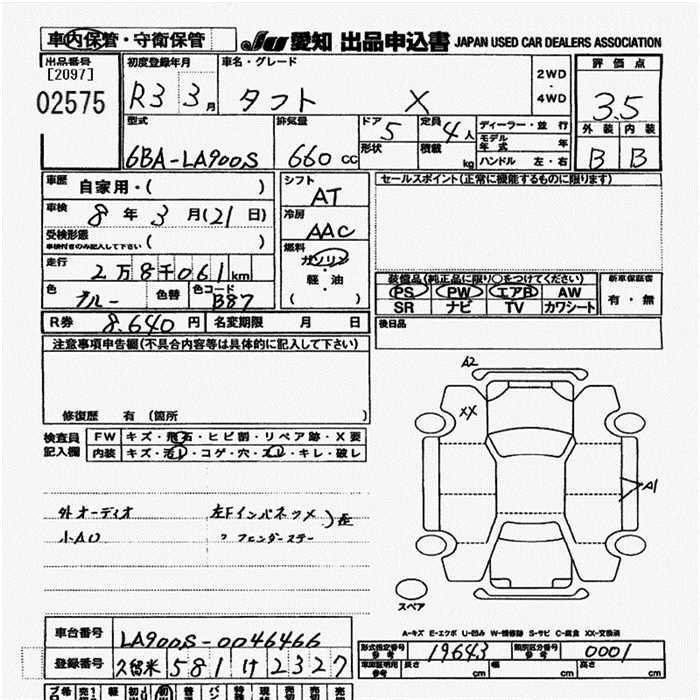 車内保管・守衛保管
JU 愛知 出品申込書 JAPAN USED CAR DEALERS ASSOCIATION
出品番号 [2097] 02575
初度登録年月 R3 3月
車名・グレード タフト X
2WD・4WD
評価点 3.5
外装 内装
B B
型式 6BA-LA900S
排気量 660 CC
ドア 5 形状
定員 4人 積載 kg
ディーラー・並行
モデル年式 年
ハンドル 左・右
車歴 自家用・( )
車検 8年3月(21日)
受検形態 ( )
車検付きのみ記入して下さい
走行 2万8千061km
色 ブルー 色替 色コード B87
シフト AT
冷房 AAC
燃料 ガソリン・軽油 ( )
セールスポイント(正常に機能するものに限ります)
装備品(純正品に限り○をつけてください)
PS PW エアB AW
SR ナビ TV カワシート
新車保証書 有・無
R券 8.640円 名変期限 月 日
後日品
注意事項申告欄(不具合内容等は具体的に記入して下さい)
修復歴 有 (箇所 )
検査員記入欄
FW キズ・飛石・ヒビ割・リペア跡・X要
内装 キズ・汚レ・コゲ・穴・スレ・キレ・破レ
外オーディオ 左Fインパネツメ
小AU 〃 フェンダーステー
A2
XX
A1
スペア
A-キズ E-エクボ U-凹み W-補修跡 S-サビ C-腐食 XX-交換済
車台番号 LA900S-0046466
登録番号 久留米 581 け 2327
型式指定番号 参考 19643 類別区分番号 参考 0001
車庫証明用 参考 長さ cm 幅 cm 高さ cm